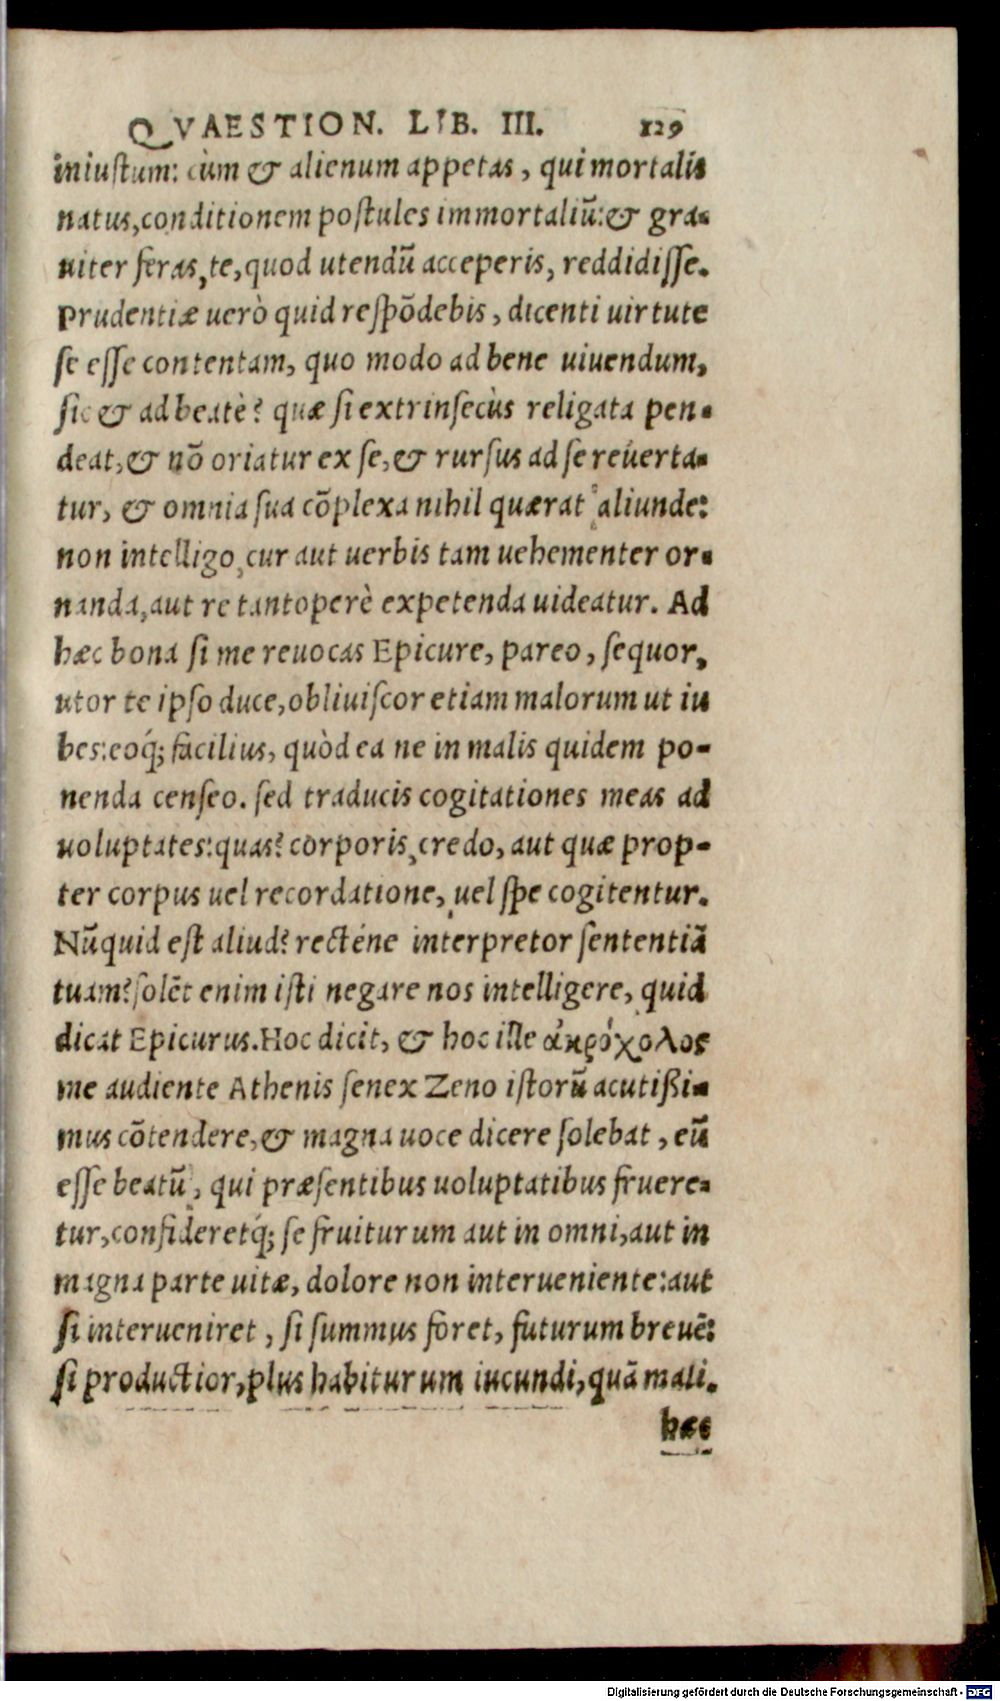 QVAESTION. LIB. III. 129
iniustum: cùm & alienum appetas, qui mortalis
natus, conditionem postules immortaliũ: & gra-
uiter feras, te, quod utendũ acceperis, reddidisse.
Prudentiæ uerò quid respõdebis, dicenti uirtute
se esse contentam, quo modo ad bene uiuendum,
sic & ad beatè? quæ si extrinsecùs religata pen-
deat, & nõ oriatur ex se, & rursus ad se reuerta-
tur, & omnia sua cõplexa nihil quærat aliunde:
non intelligo, cur aut uerbis tam uehementer or-
nanda, aut re tantoperè expetenda uideatur. Ad
hæc bona si me reuocas Epicure, pareo, sequor,
utor te ipso duce, obliuiscor etiam malorum ut iu
bes: eoq́; facilius, quòd ea ne in malis quidem po-
nenda censeo. sed traducis cogitationes meas ad
uoluptates: quas? corporis, credo, aut quæ prop-
ter corpus uel recordatione, uel spe cogitentur.
Nũquid est aliud? recténe interpretor sententiã
tuam? solẽt enim isti negare nos intelligere, quid
dicat Epicurus. Hoc dicit, & hoc ille ἀκρόχολος
me audiente Athenis senex Zeno istorũ acutißi-
mus cõtendere, & magna uoce dicere solebat, eũ
esse beatũ, qui præsentibus uoluptatibus fruere-
tur, confideretq́; se fruiturum aut in omni, aut in
magna parte uitæ, dolore non interueniente: aut
si interueniret, si summus foret, futurum breuẽ:
si productior, plus habiturum iucundi, quã mali.
hæc
Digitalisierung gefördert durch die Deutsche Forschungsgemeinschaft - DFG